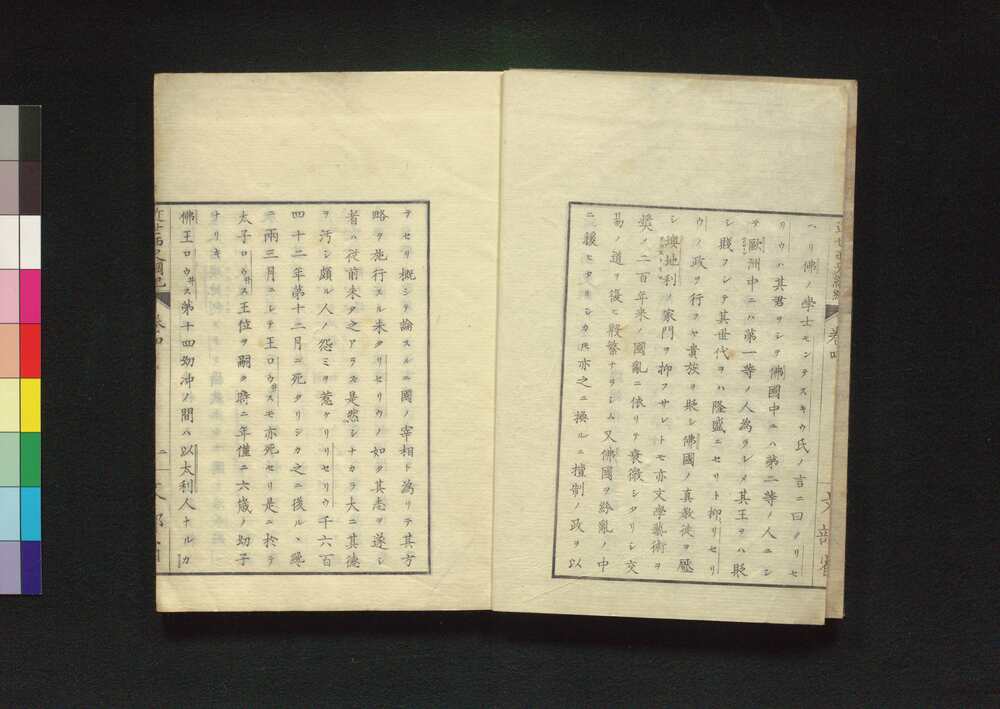 近世西史綱紀 卷四 文部省
ヘリ佛ノ學士モンテスキウ氏ノ言ニ曰ク リセ
リウハ其君ヲシヲ佛國中ニハ第二等ノ人ニシ
テ歐洲中ニハ第一等ノ人為ラシメ其王ヲハ貶
シ賤フシテ其世代ヲハ隆盛ニセリト抑リセリ
ウノ政ヲ行フヤ貴族ヲ貶シ佛國ノ真教徒ヲ壓
シ澳地利ノ家門ヲ抑フサレトモ亦文學藝術ヲ
奬ノ二百年来ノ國亂ニ依リテ衰微シタリシ交
易ノ道ヲ復ヒ殷繁ナラシム又佛國ヲ紛亂ノ中
ニ援ヒタリシカ𪜈亦之ニ換ルニ擅制ノ政ヲ以
テセリ概シテ論スルニ國ノ宰相ト為リテ其方
略ヲ施行スル未タリセリウノ如ク其志ヲ遂シ
者ハ従前未タ之アラス是然シナカラ大ニ其德
ヲ汚シ頗ル人ノ怨ミヲ蒐ケリリセリウ千六百
四十二年第十二月ニ死タリシカ之ニ後ルヽ纔
ニ兩三月ニシテ王ロウ井スモ亦死セリ是ニ於テ
太子ロウ井ス王位ヲ嗣ク時ニ年僅ニ六歳ノ幼子
ナリキ
佛王ロウ井ス第十四幼冲ノ間ハ以太利人ナルカ
近世西史綱紀 卷四 二 文部省